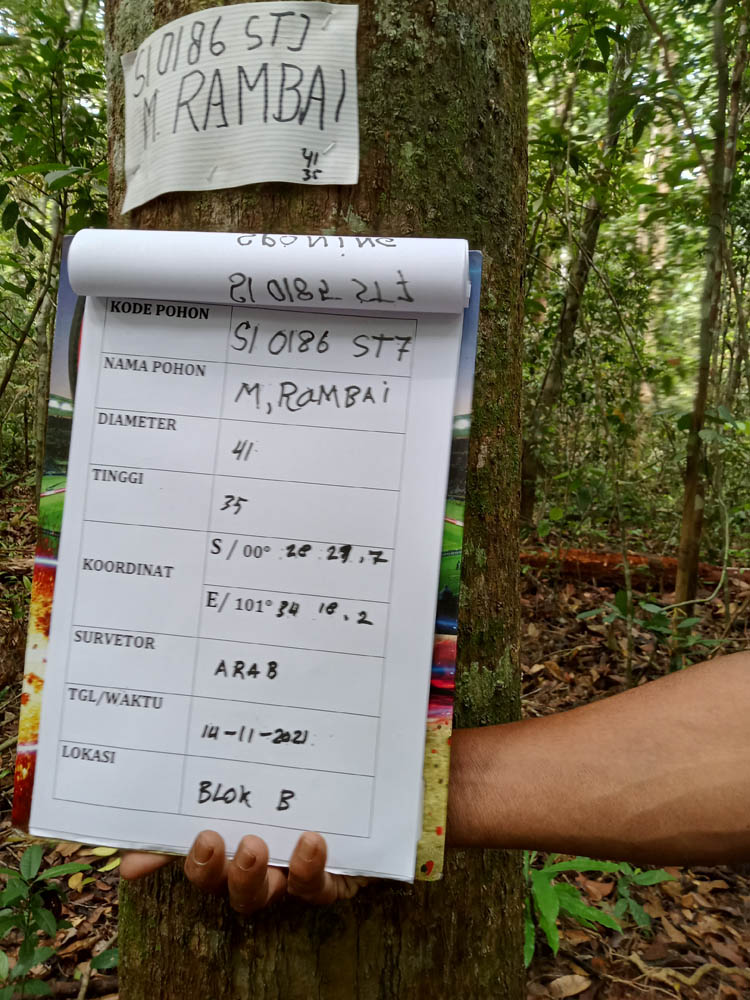 S10186 ST7
M. RAMBAI
41
35
KODE POHON S10186 ST7
NAMA POHON M, RAMBAi
DIAMETER 41
TINGGI 35
KOORDINAT S / 00° 28 29,7
E/ 101° 34 18,2
SURVETOR ARAB
TGL/WAKTU 14-11-2021
LOKASI BLOK B